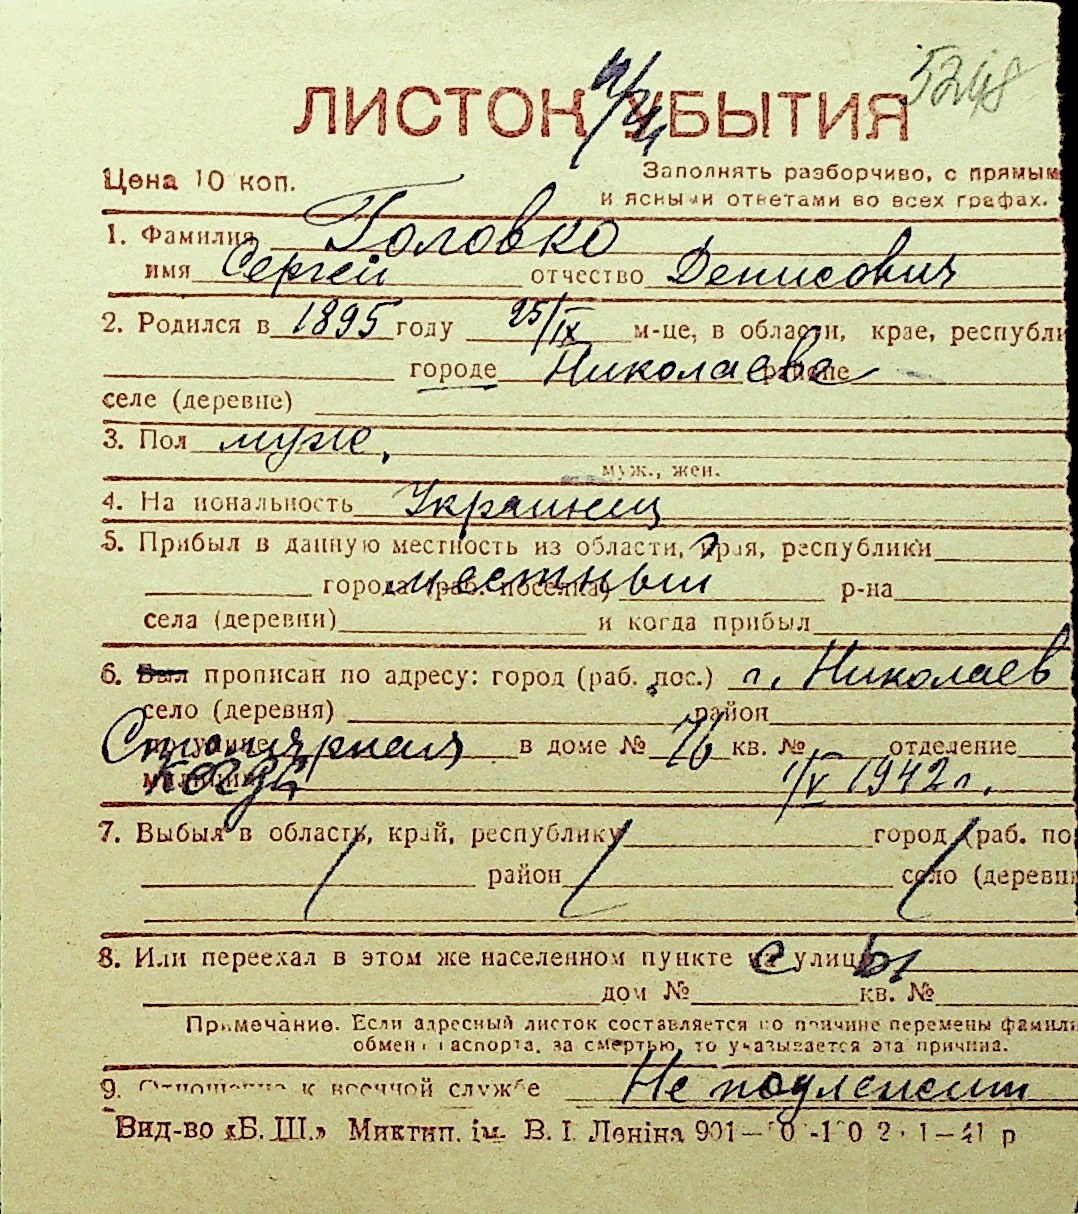 5248
ЛИСТОК УБЫТИЯ
Цена 10 коп.
Заполнять разборчиво, с прямым
и ясными ответами во всех графах.
1. Фамилия Головко
имя Сергей отчество Денисович
2. Родился в 1895 году 25/IX м-це, в области, крае, республи
городе Николаеве районе
селе (деревне)
3. Пол муж.
муж., жен.
4. Национальность Украинец
5. Прибыл в данную местность из области, края, республики
города (раб. поселка) местный р-на
села (деревни) и когда прибыл
6. Был прописан по адресу: город (раб. пос.) г. Николаев
село (деревня) район
по улице Столярная в доме № 76 кв. № отделение
милиции когда 1/V 1942 г.
7. Выбыл в область, край, республику город (раб. по
район село (деревн
8. Или переехал в этом же населенном пункте с улицы
дом № кв. №
Примечание. Если адресный листок составляется по причине перемены фамил
обмен паспорта, за смертью, то указывается эта причина.
9. Отношение к военной службе Не подлежит
Вид-во «Б. Ш.» Миктип. ім. В. І. Леніна 901—